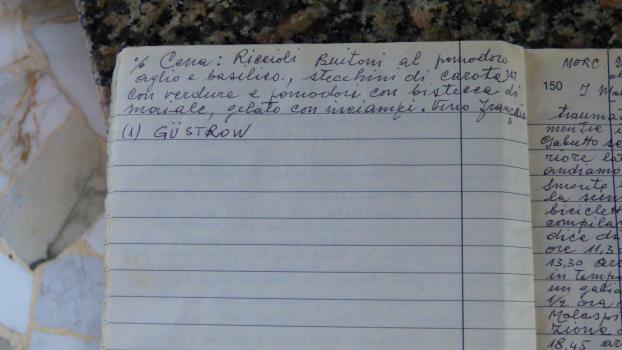 % Cena: Riccioli Buitoni al pomodoro
aglio e basilico, stecchini di carota 147
con verdure e pomodori con bistecca di
maiale, gelato con inciampi. Vino français
(1) GÜSTROW
MERC. 2
150 I Ma
traumat
mentre i
Gabutto se
riore lat
andiamo
smonto
la sem
biciclett
compilar
dice di
ore 11,3
13,30 arr
in tempo
un gabi
1/2 ora d
Malaspi
zione d
18,45 ar